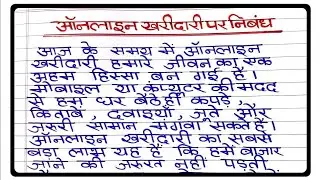 ऑनलाइन खरीदारी पर निबंध
आज के समय में ऑनलाइन
खरीदारी हमारे जीवन का एक
अहम हिस्सा बन गई है।
मोबाइल या कंप्यूटर की मदद
से हम घर बैठे ही कपड़े,
किताबें, दवाइयाँ, जूते और
जरूरी सामान मंगवा सकते हैं।
ऑनलाइन खरीदारी का सबसे
बड़ा लाभ यह है कि हमें बाजार
जाने की जरूरत नहीं पड़ती